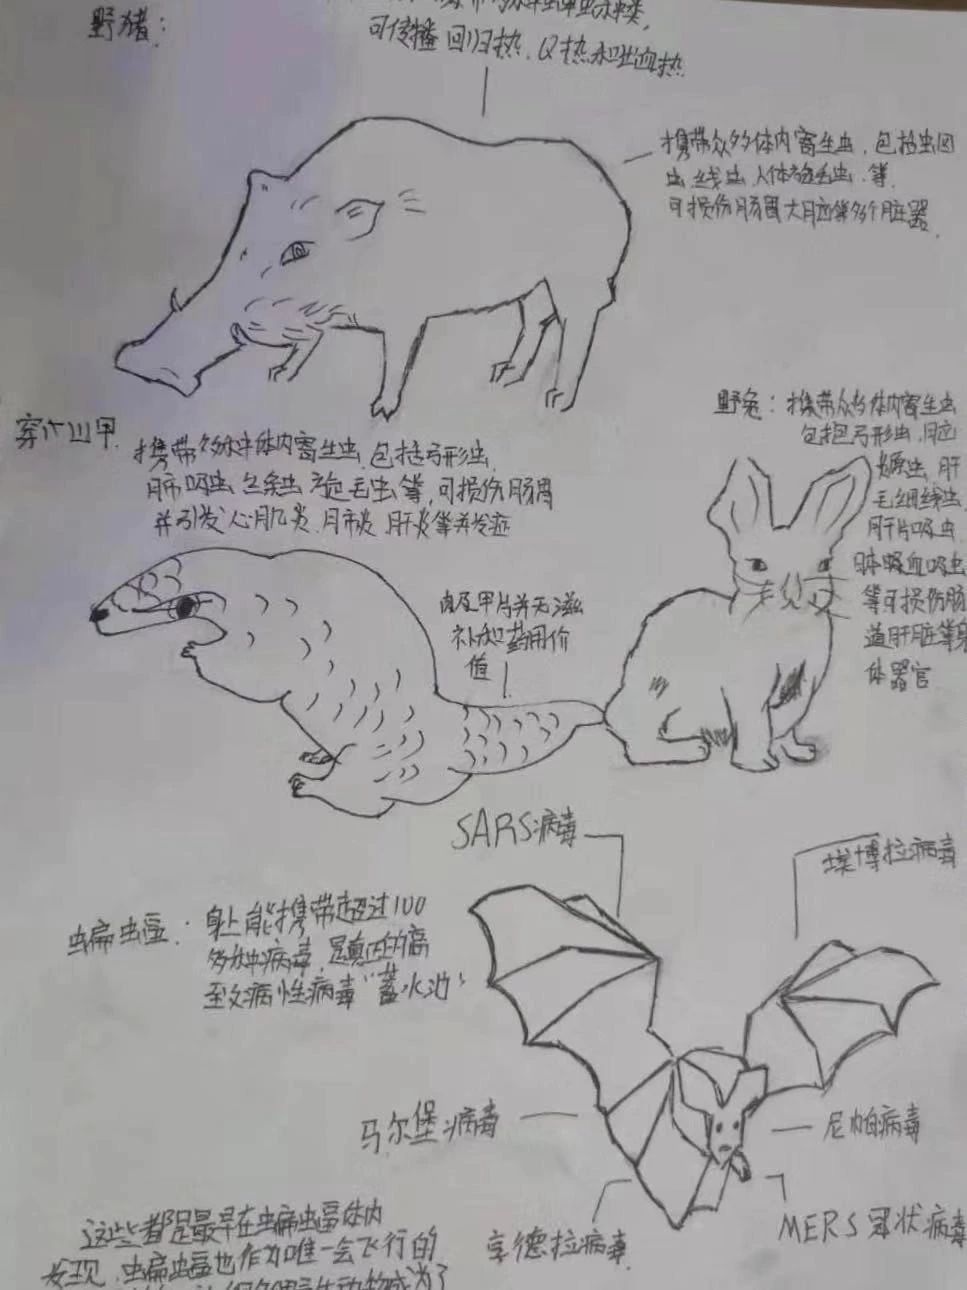 野猪：
可传播回归热，Q热和出血热
携带众多体内寄生虫，包括虫回
虫，线虫，人体旋毛虫，等，
可损伤肠胃大脑等多个脏器，
穿山甲，
携带多种体内寄生虫，包括弓形虫，
肺吸虫，绦虫，旋毛虫等，可损伤肠胃
并引发心肌炎，肺炎，肝炎等并发症
肉及甲片并无滋
补和药用价
值
野兔：携带众多体内寄生虫
包括弓形虫，脑
虫，肝
毛细线虫，
肝片吸虫，
吸血吸虫
等可损伤肠
道肝脏等身
体器官
SARS病毒
埃博拉病毒
蝙蝠：身上能携带超过100
多种病毒，是真正的高
至文病性病毒“蓄水池”
马尔堡病毒
尼帕病毒
亨德拉病毒
MERS冠状病毒
这些都是最早在蝙蝠体内
发现，蝙蝠也作为唯一会飞行的